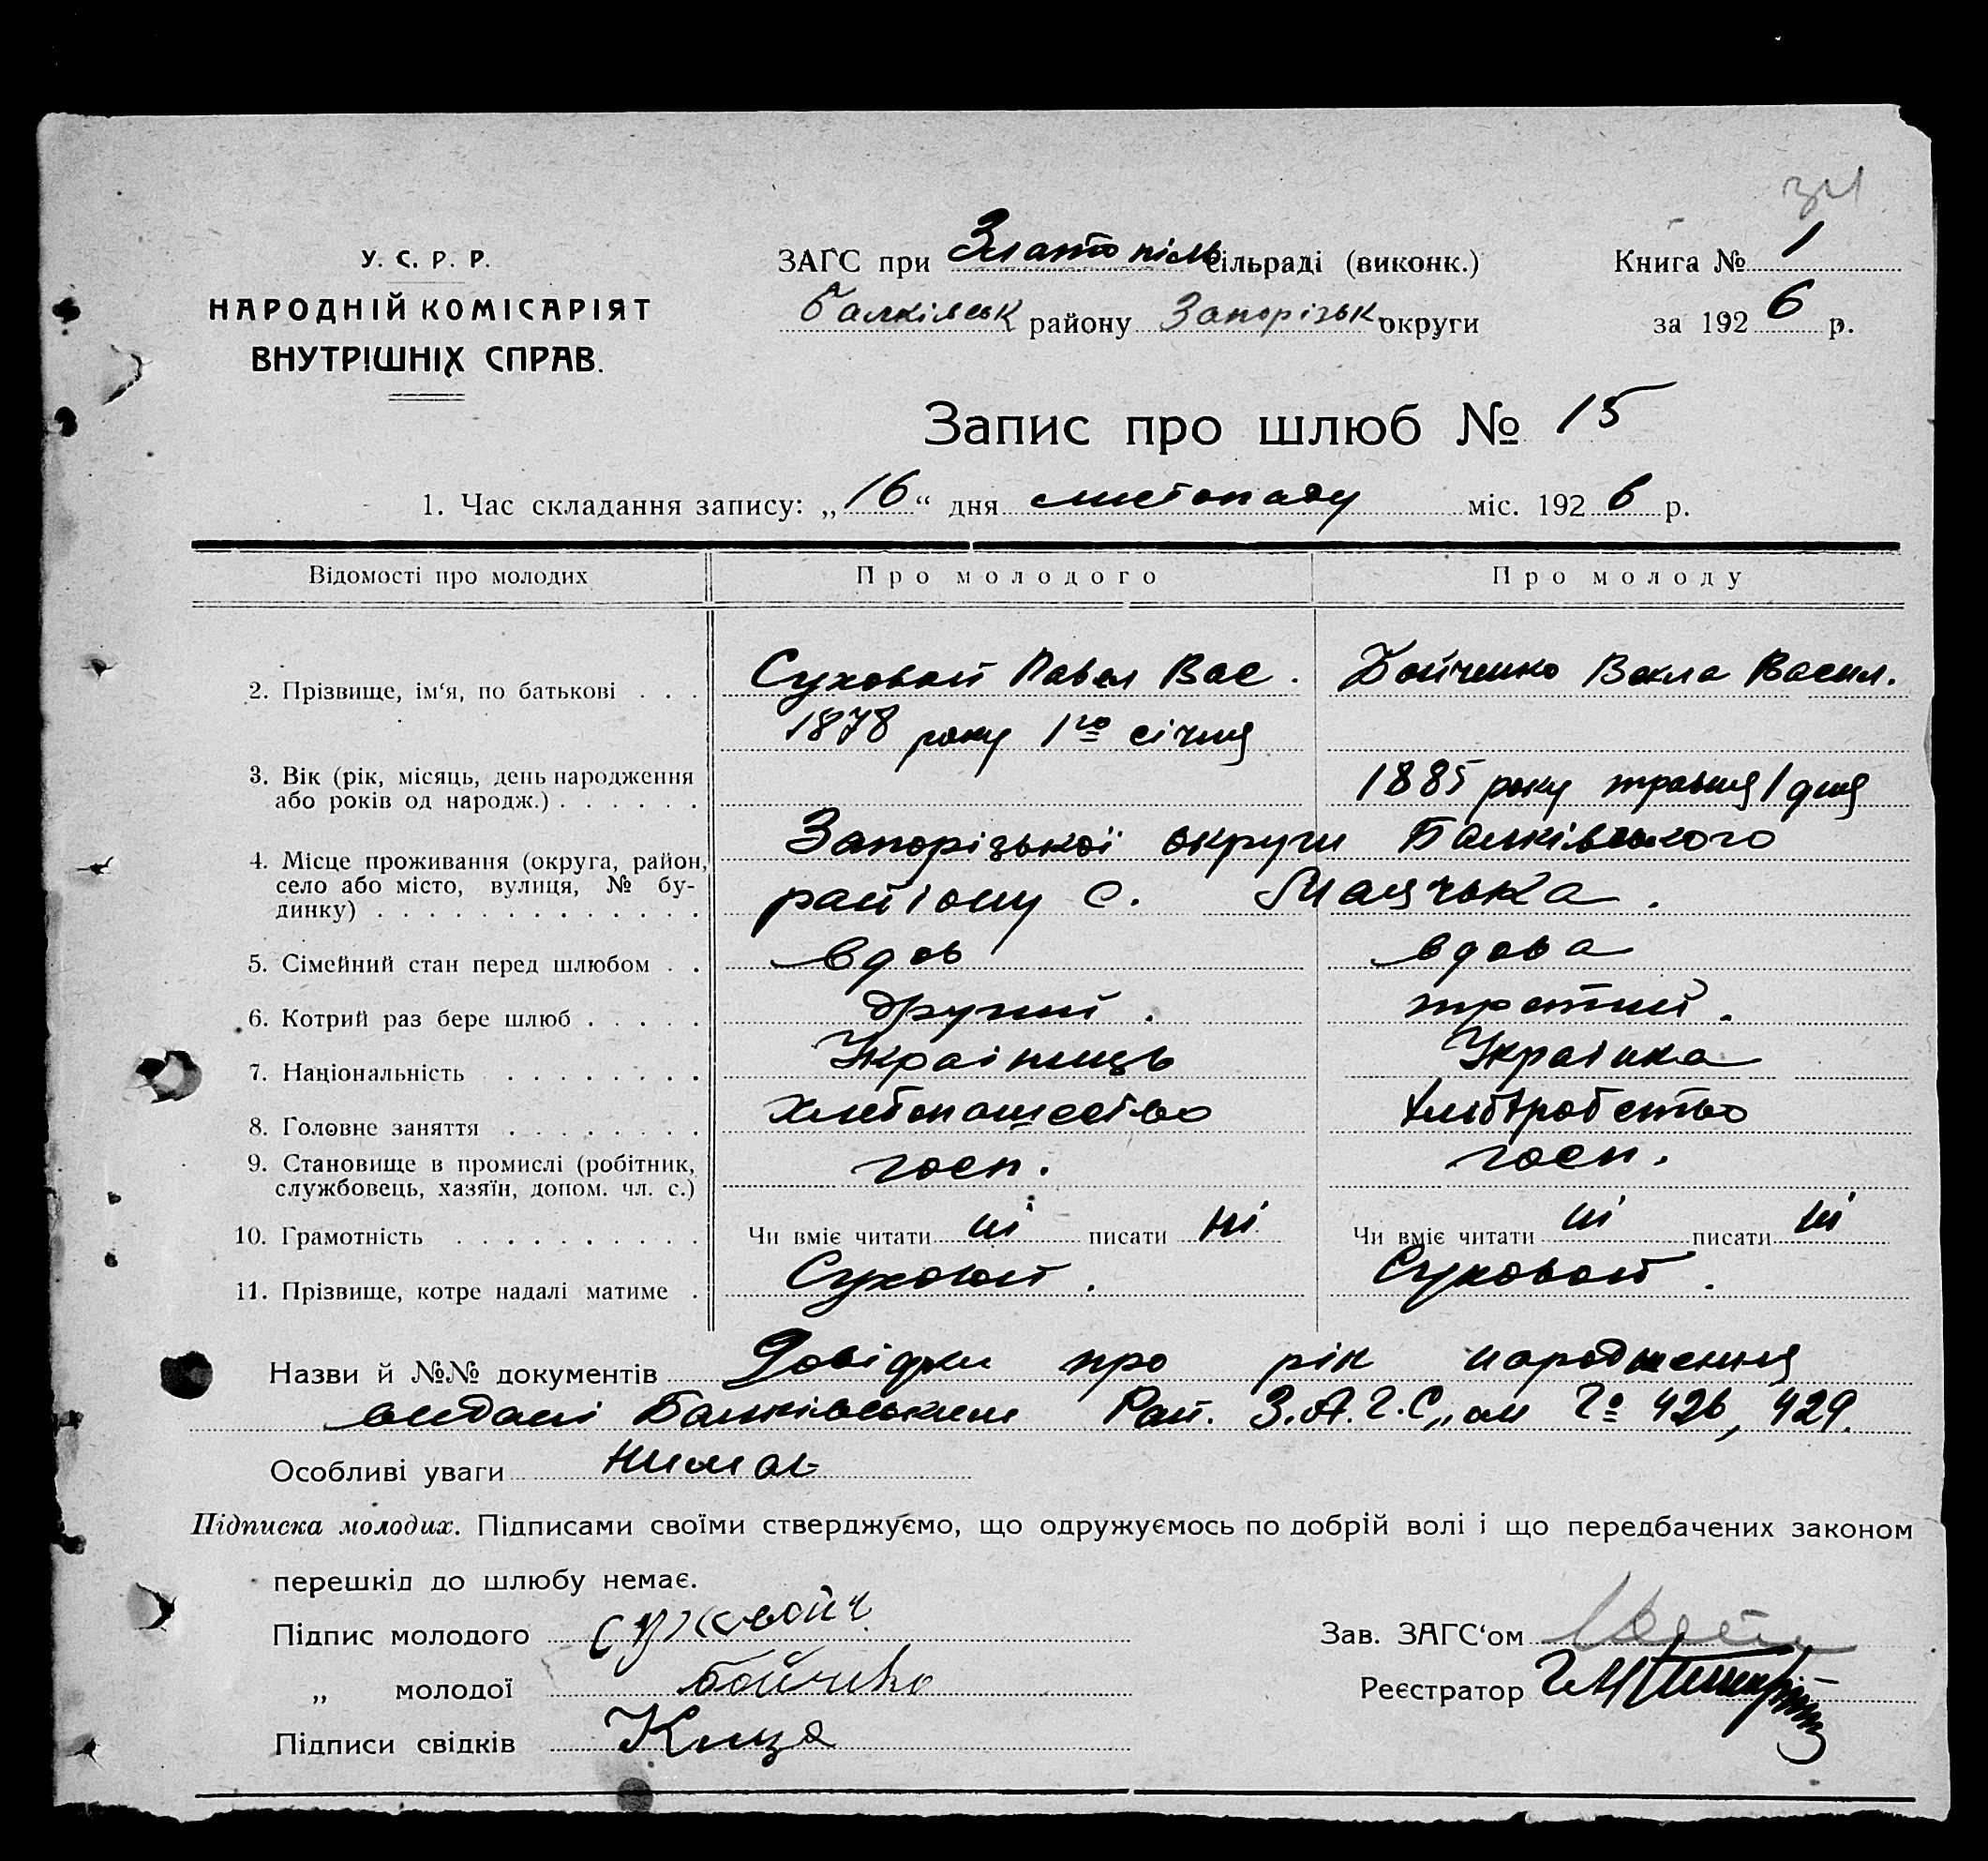 31
У. С. Р. Р.
НАРОДНІЙ КОМІСАРІЯТ
ВНУТРІШНІХ СПРАВ.
ЗАГС при Златопіль сільраді (виконк.)
Балківськ району Запорізьк округи
Книга № 1
за 1926 р.
Запис про шлюб № 15
1. Час складання запису: „16“ дня листопаду міс. 1926 р.
Відомості про молодих Про молодого Про молоду
2. Прізвище, ім‘я, по батькові . . . Суховой Павел Вас. Бойченко Векла Васил.
1878 року 1го січня
3. Вік (рік, місяць, день народження
або років од народж.) . . . . . . 1885 року травня 1 дня
4. Місце проживання (округа, район, Запорізької округи Балківського
село або місто, вулиця, № бу-
динку) . . . . . . . . . . . . . району с. Маячька.
5. Сімейний стан перед шлюбом . . вдов вдова
6. Котрий раз бере шлюб . . . . . другий. третий.
7. Національність . . . . . . . . Украінець Украінка
8. Головне заняття . . . . . . . . хлебопашество хлібробство
9. Становище в промислі (робітник,
службовець, хазяїн, допом. чл. с.) госп. госп.
10. Грамотність . . . . . . . . . . Чи вміє читати ні писати ні Чи вміє читати ні писати ні
11. Прізвище, котре надалі матиме . Суховой. Суховой.
Назви й №№ документів Довідки про рік народження
видані Балківським Рай. З.А.Г.С„ом 426, 429.
Особливі уваги Нимає
Підписка молодих. Підписами своїми стверджуємо, що одружуємось по добрій волі і що передбачених законом
перешкід до шлюбу немає.
Підпис молодого
„ молодої бойчико
Підписи свідків
Зав. ЗАГС‘ом
Реєстратор